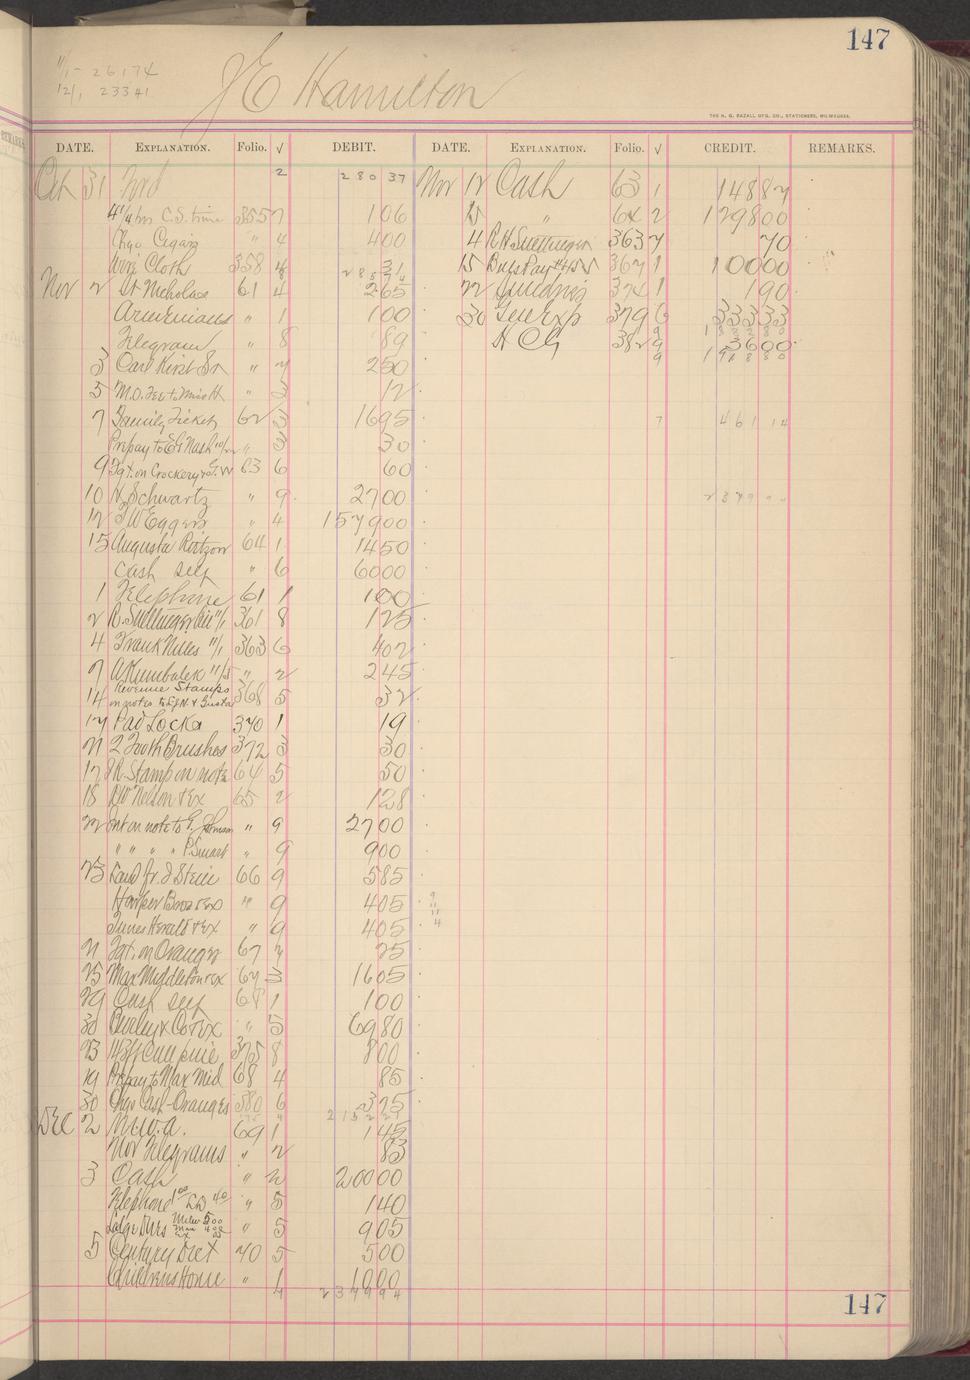 147
11/1 - 26174
12/1, 23341
J E Hamilton
THE H. G. RAZALL MFG. CO., STATIONERS, MILWAUKEE.
DATE. EXPLANATION. Folio. √ DEBIT. DATE. EXPLANATION. Folio. √ CREDIT. REMARKS.
Oct 31 Fwd 2 280 37 Nov 12 Cash 63 1 148 87
4 1/4 hrs C.S. time 355 7 1 06 15 " 64 2 1298 00
Chgo Cigars " 4 4 00 4 R H Suettinger 363 7 70
Wire Cloth 358 4 31 15 367 1 100 00
285 74
Nov 2 St Nicholas 61 4 2 65 22 Sundries 374 1 1 90
Armenians " 1 1 00 30 Gen Exp 379 6 333 33
1882 80
Telegram " 8 89 H C G 382 9 36 00
9 1918 80
3 Carl Kirst Sr " 7 2 50
5 M.O. Fee to Miss H " 3 12
7 Family Tickets 62 3 16 95 7 461 14
Prepay to E G Nash 10/22 " 3 30
9 Fgt. on Crockery & G.W 63 6 60
2379 94
10 H Schwartz " 9 27 00
12 F W Eggers " 4 1579 00
15 Augusta Roitzow 64 1 14 50
Cash self " 6 60 00
1 Telephone 61 1 1 00
2 R. Suettinger 11/1 361 8 1 25
4 Frank Miles 11/1 363 6 4 02
7 11/5 " 2 2 45
14 Revenue Stamps
on notes to 368 5 32
17 Pad Locks 370 1 19
21 2 Tooth Brushes 372 3 30
17 I R. Stamp on note 64 5 50
18 Nelson & Ex 65 2 1 28
22 Int on note to G. Johnson " 9 27 00
" " " " P. Smart " 9 9 00
23 J Stein 66 9 5 85
Harper Bros & Ex " 9 4 05
Times Herald & Ex " 9 4 05
21 Fgt. on Oranges 67 7 25
25 Max Middleton & Ex 67 3 16 05
29 Cash self 68 1 1 00
30 Burley & Co & Ex " 5 69 80
23 375 8 8 00
19 Prepay to Max Mid 68 4 85
30 Chgo Cash - Oranges 380 6 3 75
Dec 2 N.E.W.A. 69 1 1 45
Nov Telegrams " 2 83
3 Cash " 2 200 00
Telephone 1 00 L D 40 " 5 1 40
Lodge Dues " 5 9 05
5 Century Dict 70 5 5 00
Childrens Home " 1 10 00
4 2379 94
147